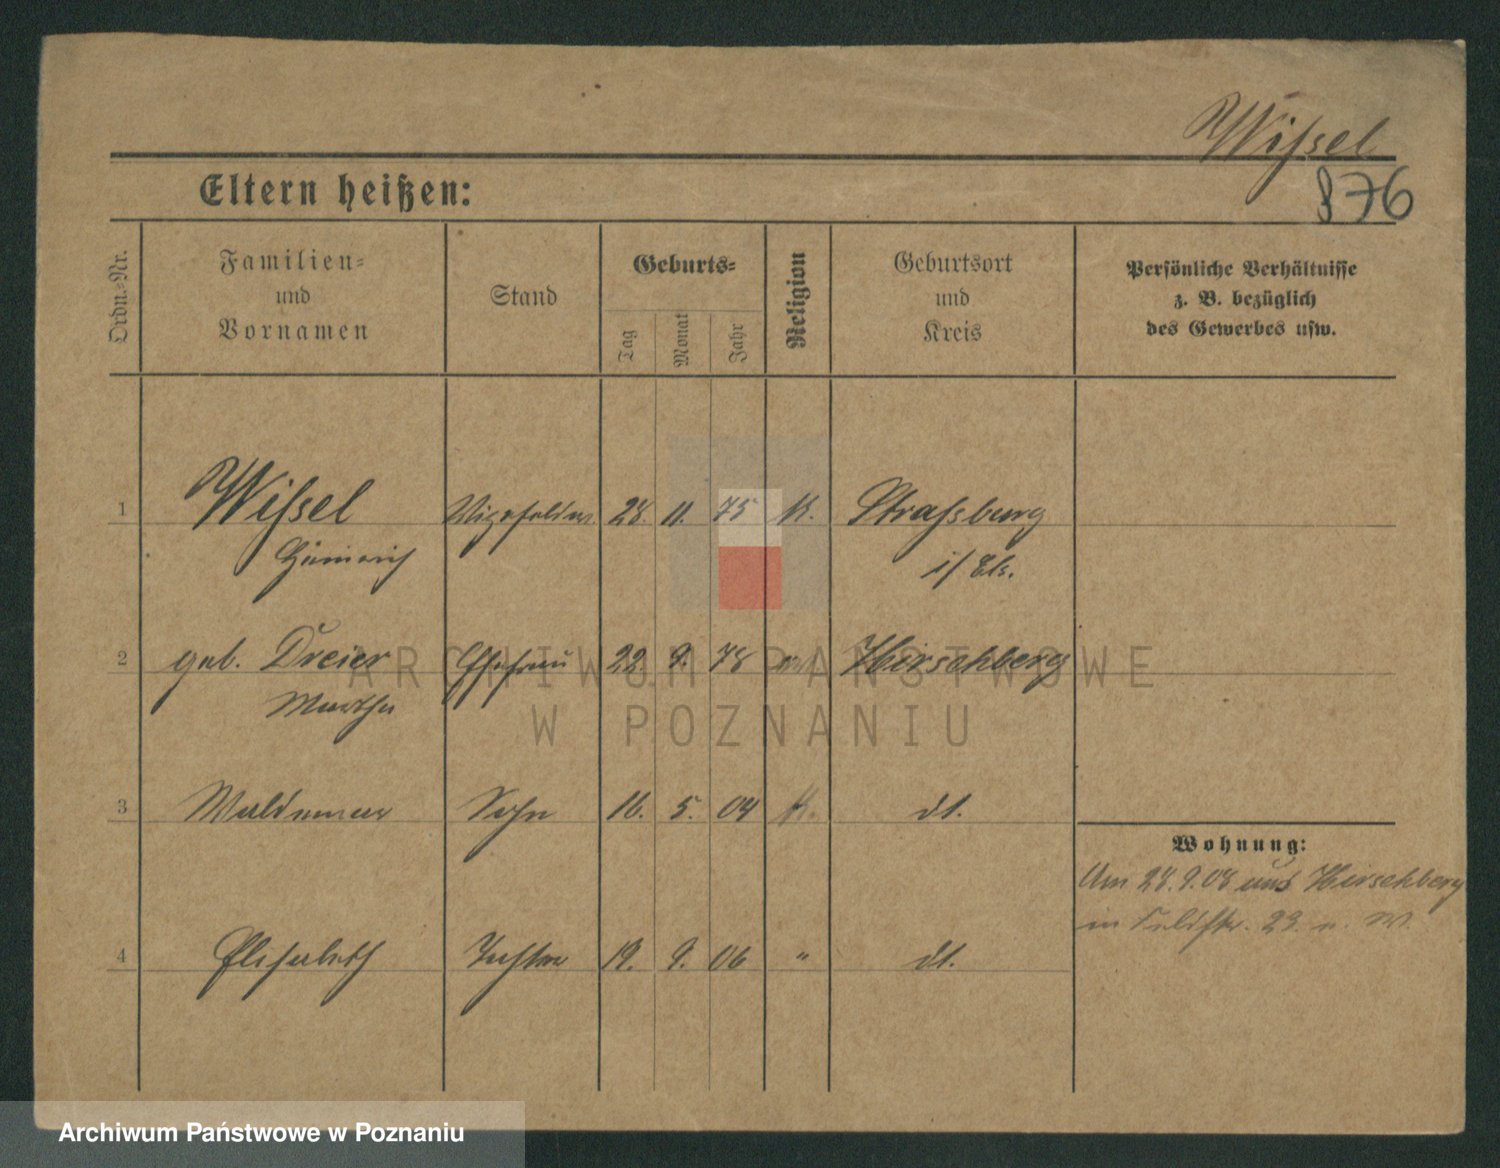 Wißsel
876
Eltern heißen:
Ordn.-Nr.
Familien-
und
Vornamen
Stand
Geburts-
Tag
Monat
Jahr
Religion
Geburtsort
und
Kreis
Persönliche Verhältnisse
z. B. bezüglich
des Gewerbes usw.
1 Wißsel Vizefeldw 28. 11. 75 K. Strassburg
Heinrich i/ Els.
2 geb. Dreier Ehefrau 22. 9. 78 Hirschberg
Martha
3 Waldemar Sohn 16. 5. 04 K. dt.
Wohnung:
Am 28.9.08 aus Hirschberg
in Feldstr. 23
4 Elisabeth Tochter 19. 9. 06 " dt.
ARCHIWUM PAŃSTWOWE
W POZNANIU
Archiwum Państwowe w Poznaniu